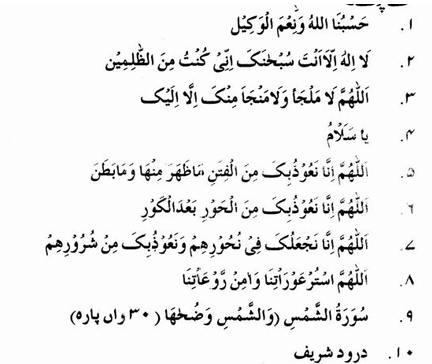 ۱. حَسْبُنَا اللهُ وَنِعْمَ الْوَكِيْل
۲. لَا اِلٰهَ اِلَّا اَنْتَ سُبْحٰنَکَ اِنِّیْ کُنْتُ مِنَ الظّٰلِمِيْن
۳. اَللّٰهُمَّ لَا مَلْجَأَ وَلَا مَنْجَأَ مِنْکَ اِلَّا اِلَيْک
۴. يَا سَلَامُ
۵. اَللّٰهُمَّ اِنَّا نَعُوْذُبِکَ مِنَ الْفِتَنِ مَاظَهَرَ مِنْهَا وَمَابَطَنَ
۶. اَللّٰهُمَّ اِنَّا نَعُوْذُبِکَ مِنَ الْحَوْرِ بَعْدَالْکَوْرِ
۷. اَللّٰهُمَّ اِنَّا نَجْعَلُکَ فِیْ نُحُوْرِهِمْ وَنَعُوْذُبِکَ مِنْ شُرُوْرِهِمْ
۸. اَللّٰهُمَّ اسْتُرْعَوْرَاتِنَا وَاٰمِنْ رَّوْعَاتِنَا
۹. سُوْرَةُ الشَّمْسِ (وَالشَّمْسِ وَضُحٰهَا ( ۳۰ واں پارہ)
۱۰. درود شریف